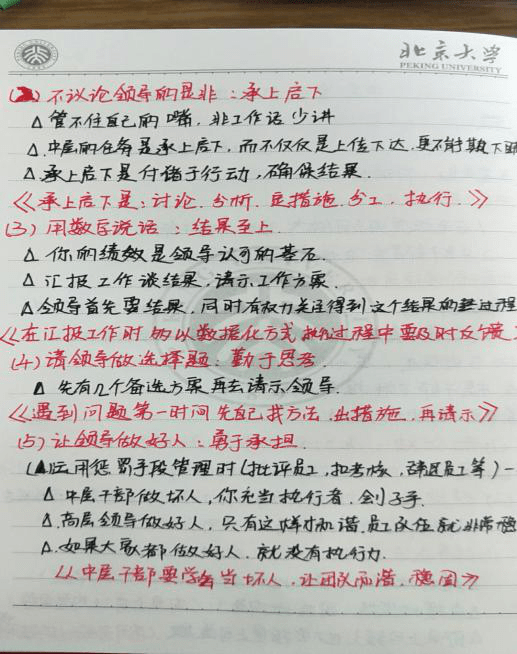 北京大学
PEKING UNIVERSITY
(2) 不议论领导的是非：承上启下
△ 管不住自己的嘴，非工作话少讲
△ 中层的任务是承上启下，而不仅仅是上传下达，更不能欺下瞒
△ 承上启下是付诸于行动，确保结果.
《承上启下是：讨论.分析.定措施.分工.执行.》
(3) 用数字说话：结果至上.
△ 你的绩效是领导认可的基石.
△ 汇报工作谈结果，请示工作方案.
△ 领导首先要结果，同时有权力关注得到这个结果的过程
《在汇报工作时多以数据化方式 执行过程中要及时反馈
(4) 请领导做选择题：勤于思考.
△ 先有几个备选方案再去请示领导.
《遇到问题第一时间先自己找方法，出措施，再请示》
(5) 让领导做好人：勇于承担.
(△运用惩罚手段管理时(批评员工，扣考核，辞退员工等)一
△ 中层干部做坏人，你充当执行者，刽子手.
△ 高层领导做好人，只有这样才和谐，员工队伍就非常稳
△ 如果大家都做好人，就没有执行力.
《中层干部要学会当坏人，让团队和谐，稳固》